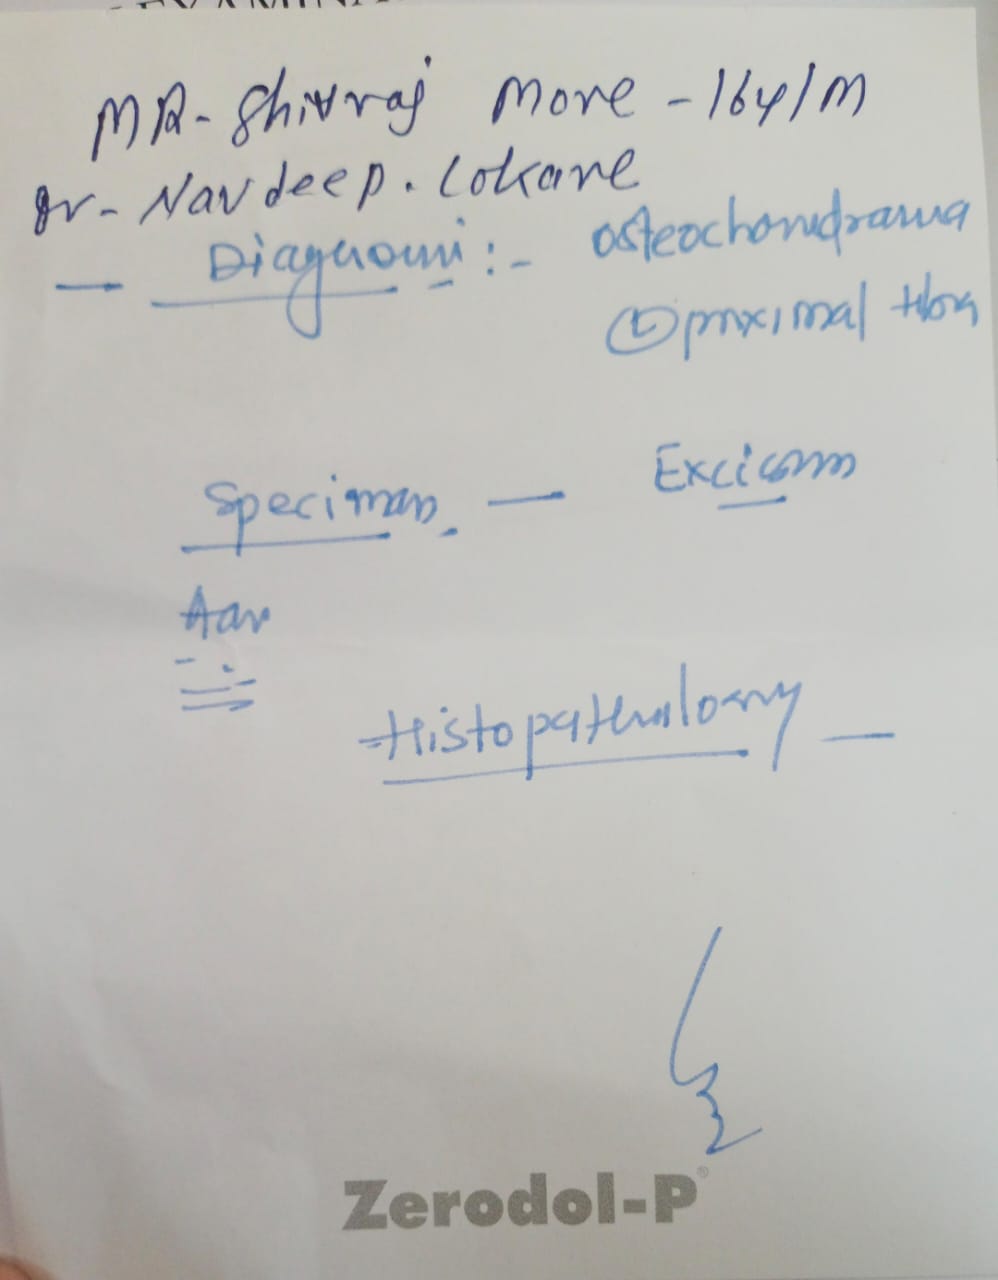 MR- Shivraj More - 16y/M
Dr- Navdeep. Lokare
— Diagnosis :- osteochondroma
(L) proximal tibia
Specimen — Excision
Adv
Histopathology —
Zerodol-P®